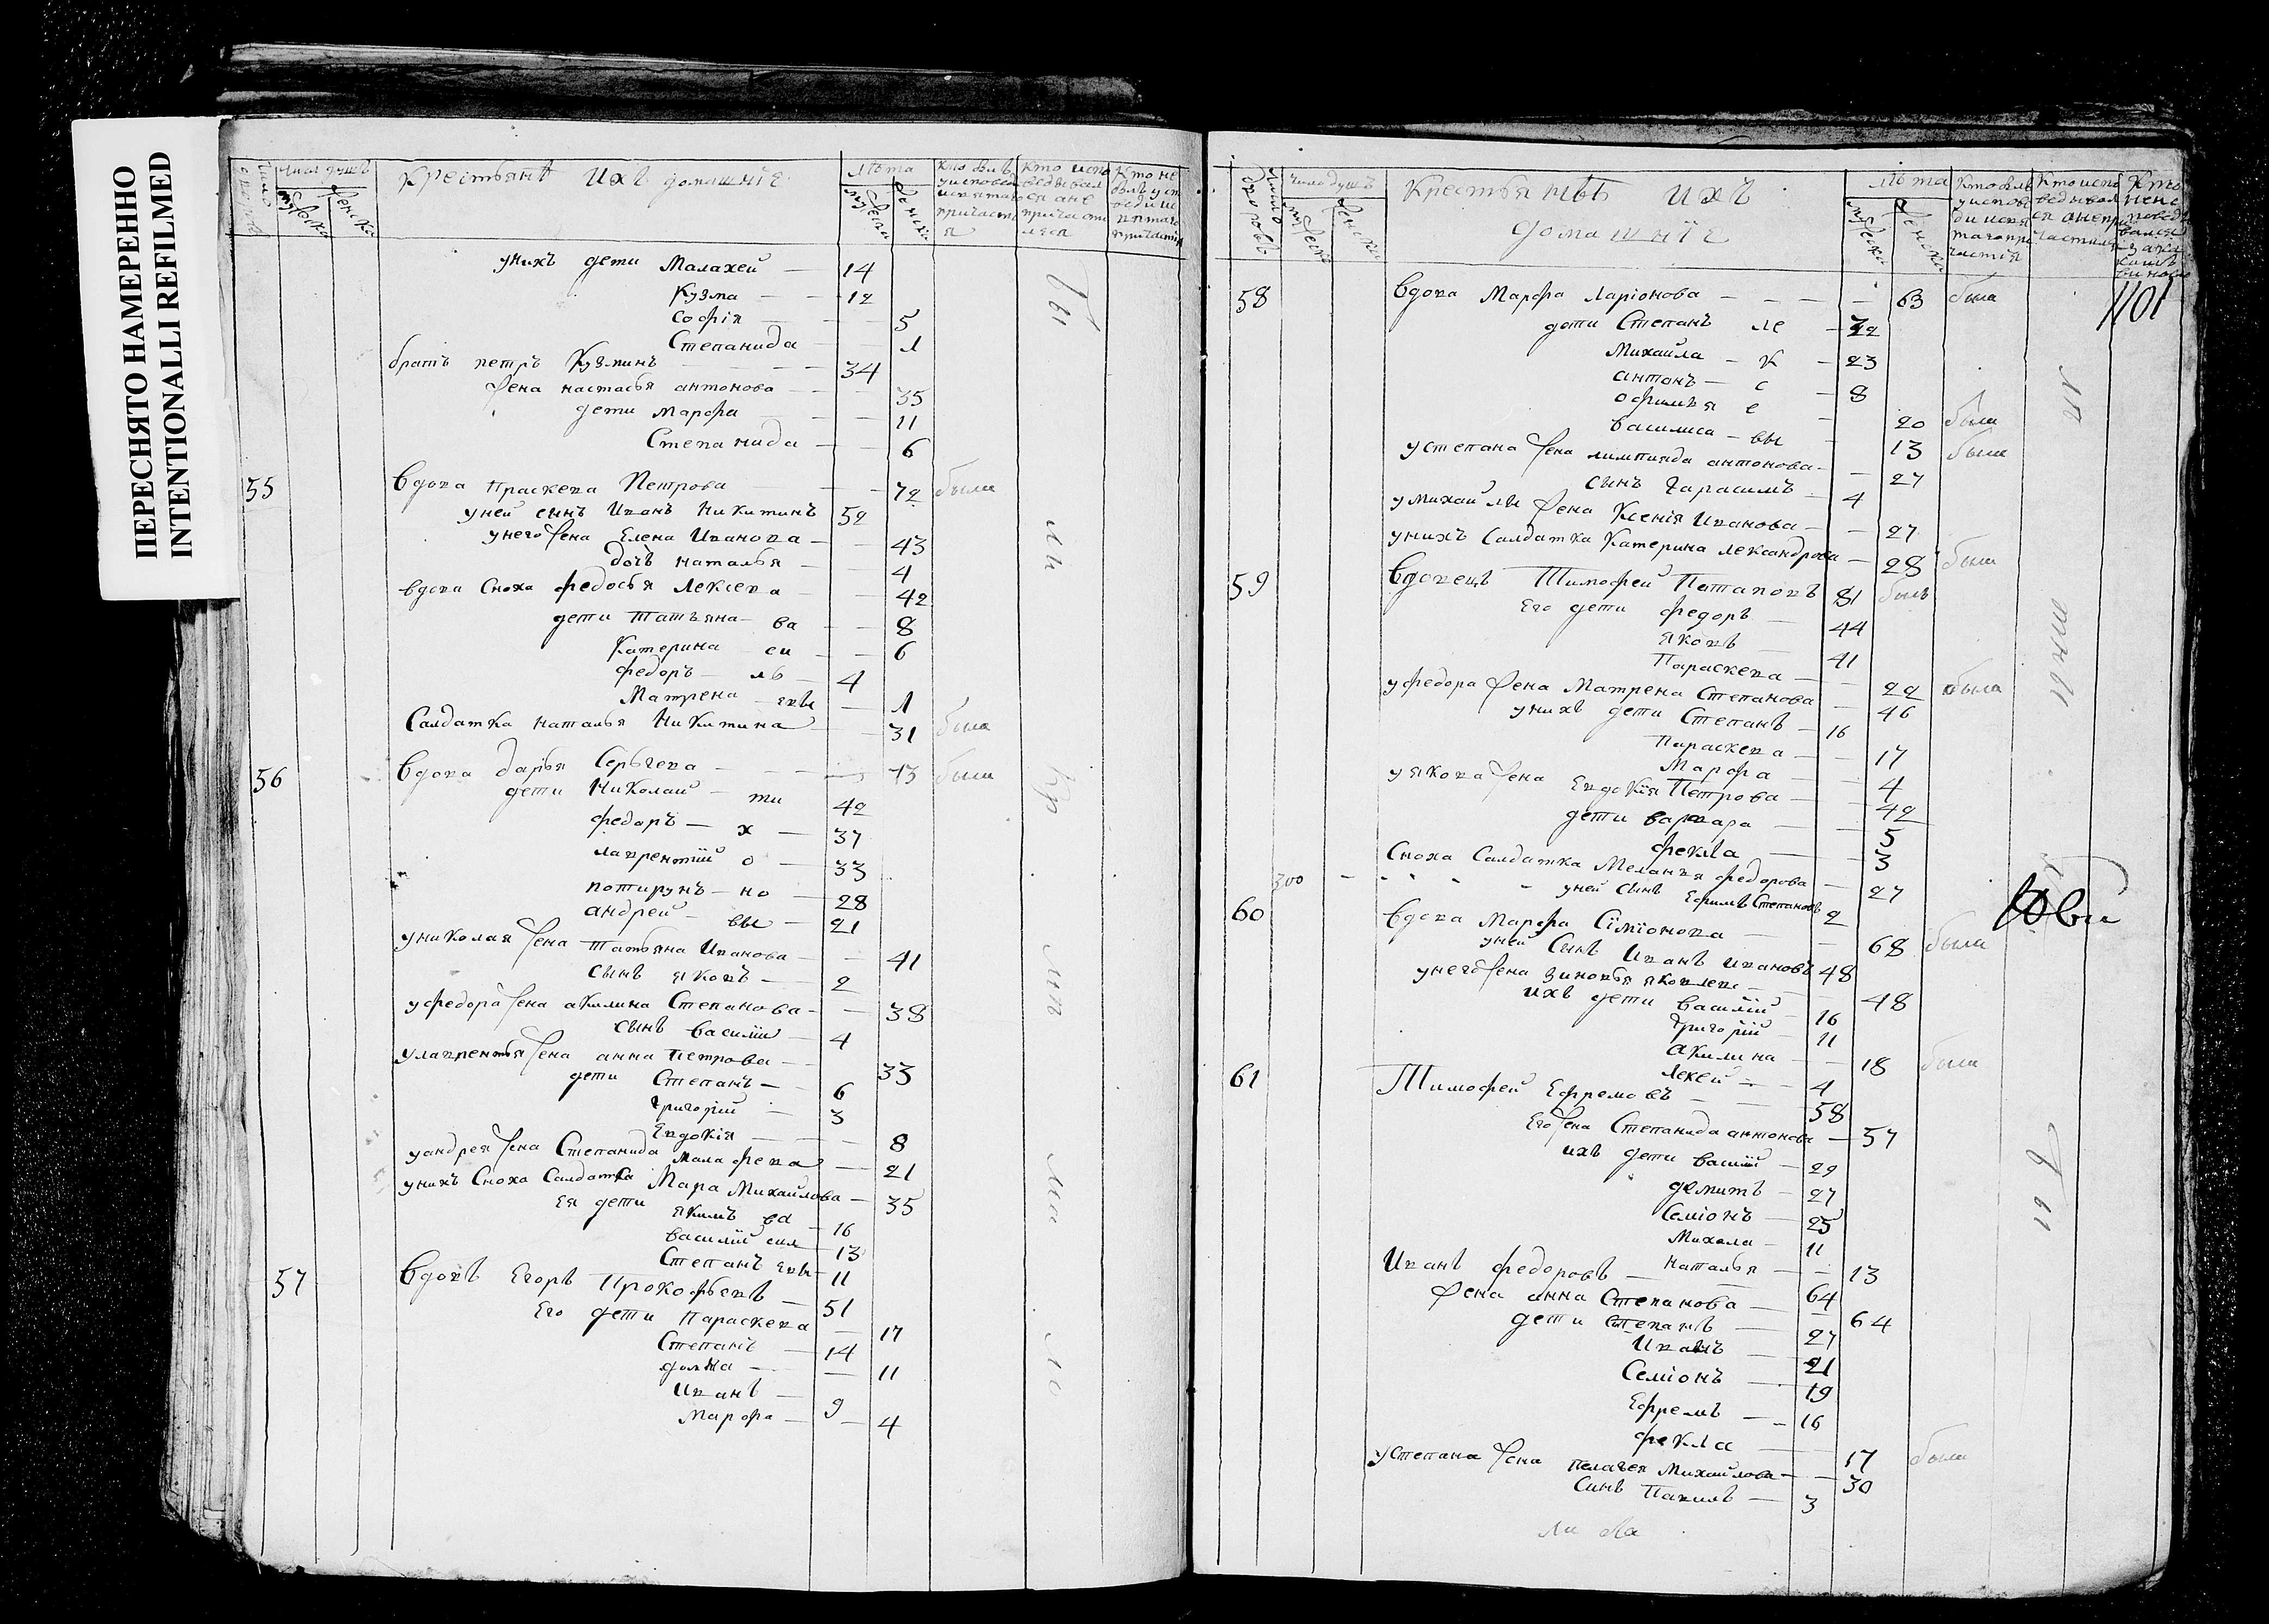 ПЕРЕСНЯТО НАМЕРЕННО
INTENTIONALLI REFILMED
Крестьянѣ ихъ домашнiе лѣта
унихъ дети Малахей — 14
Кузма — 12
Софiя — 5
Степанида — 1
братъ петръ Кузминъ 34
жена настасья антонова — 35
дети марфа — 11
Степанида — 6
55 вдова Праскева Петрова — 72 была
уней сынъ Иванъ Никитинъ 52
унего жена Елена Иванова — 43
дочь наталья — 4
вдова Сноха федосья Лексева — 42
дети Татьяна — ва — 8
Катерина си — 6
федоръ — ль — 4
Матрена евы — 1
Салдатка наталья Никитина — 31 была
56 вдова дарья Сергеева — 73 была
дети Николай — ти 42
федоръ — х — 37
лаврентiй о — 33
— но — 28
андрей — вы — 21
униколая жена Татьяна Иванова — 41
сынъ яковъ — 2
уфедора жена акилина Степанова — 38
сынъ василiй — 4
улаврентья жена анна петрова — 33
дети Степанъ — 6
григорiй — 3
Евдокiя — 8
уандрея жена Степанида Малафева — 21
унихъ Сноха Салдатка Мара Михайлова — 35
Ея дети якимъ ва — 16
василiй сил — 13
Степанъ евы — 11
57 вдовъ Егоръ Прокофьевъ — 51
Его дети Параскева — 17
Степанъ — 14
— 11
Иванъ — 9
Марфа — 4
Крестьянѣ ихъ лѣта
домашнiе
58 вдова Марфа Ларiонова — 63 была 1101
дети Степанъ ле — 32
Михаила — к — 23
антонъ — с — 8
офимья е — 20 была
василиса — вы 13 была
устепана жена лимпияда антонова — 27
сынъ гарасимъ — 4
умихайлы жена Ксенiя Иванова — 27
унихъ Салдатка Катерина лександрова — 28 была
59 вдовецъ Тимофей Потаповъ 81 былъ
Его дети федоръ — 44
яковъ — 41
Параскева — 22 была
уфедора жена Матрена Степанова 46
унихъ дети Степанъ — 16
Параскева — 17
Марфа — 4
уякова жена Евдокiя Петрова — 42
дети варвара — 5
фекла — 3
Сноха Салдатка Меланья федорова — 27
300 уней сынъ Ефимъ Степановъ 2
60 вдова Марфа Сiмiонова — 68 была
уней Сынъ Иванъ Ивановъ 48
унего жена зиновья яковлева — 48
ихъ дети василiй — 16
григорiй — 11
акилина — 18 была
лексей — 4
61 Тимофей Ефремовъ — 58
Его жена Степанида антонова — 57
ихъ дети василiй — 29
демитъ — 27
Семiонъ — 25
Михала — 11
наталья — 13
Иванъ федоровъ — 64
жена анна Степанова — 64
дети Степанъ — 27
Иванъ — 21
Семiонъ — 19
Ефремъ — 16
фекла — 17 была
устепана жена пелагея Михайлова — 30
Синъ Павилъ — 3